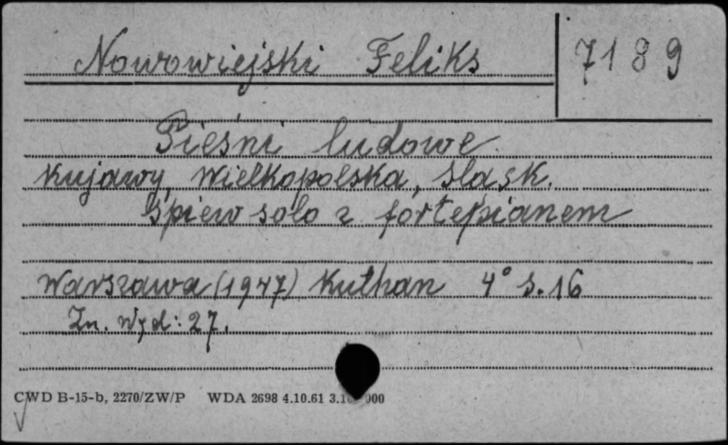 Nowowiejski Feliks
7189
Pieśni ludowe
Kujawy, Wielkopolska, Śląsk.
Śpiew solo z fortepianem
Warszawa (1947) Kuthan 4° s. 16
Zn. wyd: 27.
CWD B-15-b, 2270/ZW/P WDA 2698 4.10.61 000